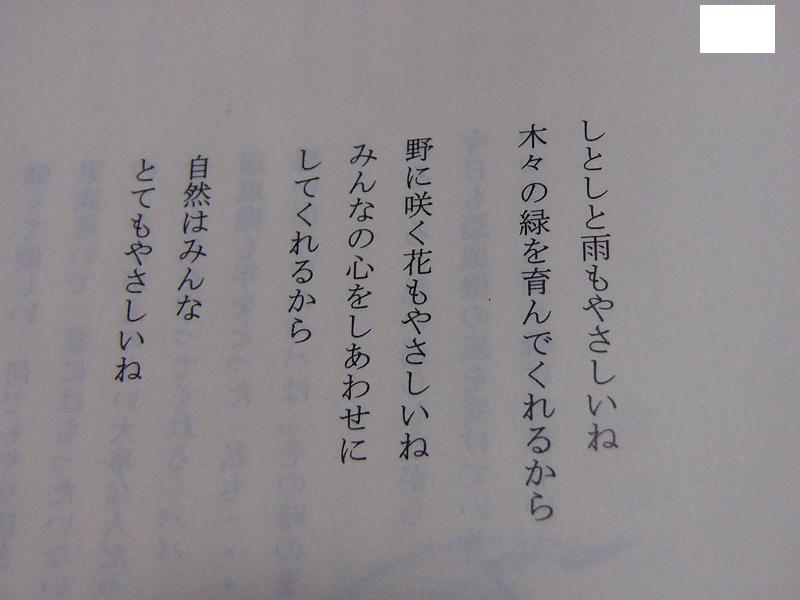 しとしと雨もやさしいね
木々の緑を育んでくれるから
野に咲く花もやさしいね
みんなの心をしあわせに
してくれるから
自然はみんな
とてもやさしいね